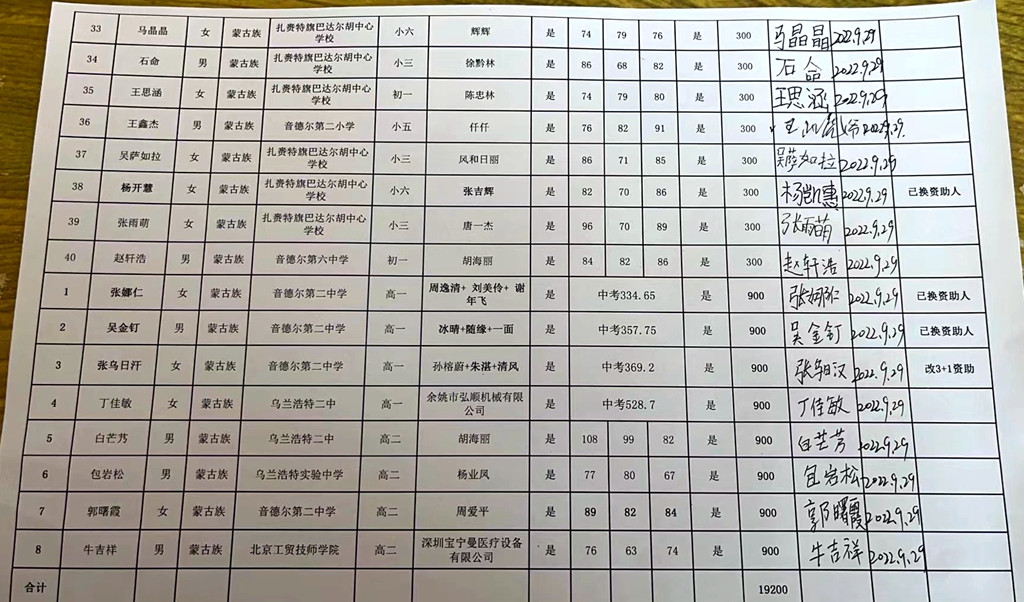 33 马晶晶 女 蒙古族 扎赉特旗巴达尔胡中心学校 小六 辉辉 是 74 79 76 是 300 马晶晶 2022.9.29
34 石命 男 蒙古族 扎赉特旗巴达尔胡中心学校 小三 徐黔林 是 86 68 82 是 300 石命 2022.9.29
35 王思涵 女 蒙古族 扎赉特旗巴达尔胡中心学校 初一 陈忠林 是 74 79 80 是 300 王思涵 2022.9.29
36 王鑫杰 男 蒙古族 音德尔第二小学 小五 仟仟 是 76 82 91 是 300 2022.9.29.
37 吴萨如拉 女 蒙古族 扎赉特旗巴达尔胡中心学校 小三 风和日丽 是 86 71 85 是 300 吴萨如拉 2022.9.29
38 杨开慧 女 蒙古族 扎赉特旗巴达尔胡中心学校 小六 张吉辉 是 82 70 86 是 300 杨凯惠 2022.9.29 已换资助人
39 张雨萌 女 蒙古族 扎赉特旗巴达尔胡中心学校 小三 唐一杰 是 96 70 89 是 300 张雨萌 2022.9.29
40 赵轩浩 男 蒙古族 音德尔第六中学 初一 胡海丽 是 84 82 86 是 300 赵轩浩 2022.9.29
1 张娜仁 女 蒙古族 音德尔第二中学 高一 周逸清+ 刘美伶+ 谢年飞 是 中考334.65 是 900 张娜仁 2022.9.29 已换资助人
2 吴金钉 男 蒙古族 音德尔第二中学 高一 冰晴+随缘+一面 是 中考357.75 是 900 吴金钉 2022.9.29 已换资助人
3 张乌日汗 女 蒙古族 音德尔第二中学 高一 孙榕蔚+朱湛+清风 是 中考369.2 是 900 张乌日汉 2022.9.29 改3+1资助
4 丁佳敏 女 蒙古族 乌兰浩特二中 高一 余姚市弘顺机械有限公司 是 中考528.7 是 900 丁佳敏 2022.9.29
5 白芒艿 男 蒙古族 乌兰浩特二中 高二 胡海丽 是 108 99 82 是 900 白芒艿 2022.9.29
6 包岩松 男 蒙古族 乌兰浩特实验中学 高二 杨业凤 是 77 80 67 是 900 包岩松 2022.9.29
7 郭曙霞 女 蒙古族 音德尔第二中学 高二 周爱平 是 89 82 84 是 900 郭曙霞 2022.9.29
8 牛吉祥 男 蒙古族 北京工贸技师学院 高二 深圳宝宁曼医疗设备有限公司 是 76 63 74 是 900 牛吉祥 2022.9.29
合计 19200